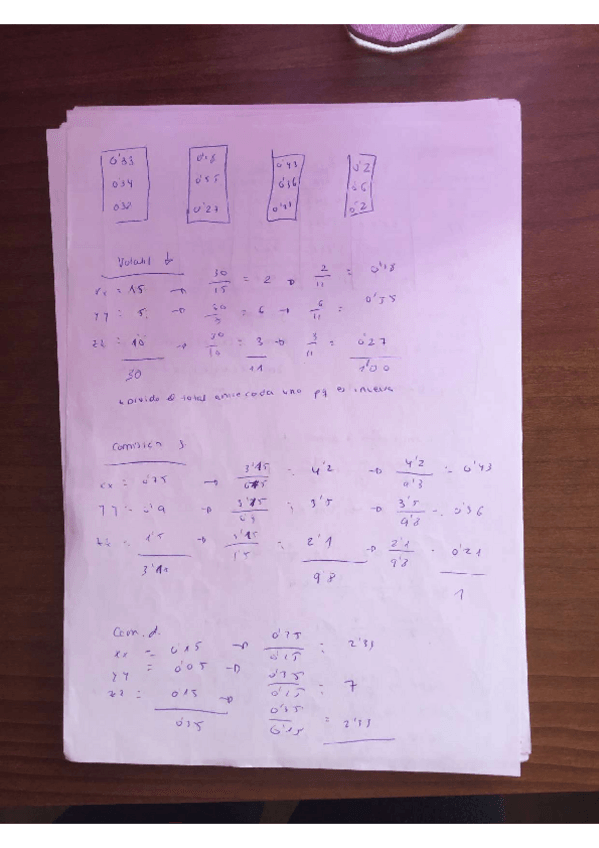 0'33 0'18 0'43 0'2
0'34 0'55 0'36 0'6
0'32 0'27 0'21 0'2
Volatil
xx = 15 → 30/15 = 2 → 2/11 = 0'18
yy = 5 → 30/5 = 6 → 6/11 = 0'55
zz = 10 → 30/10 = 3 → 3/11 = 0'27
30 11 1'00
Divido el total entre cada uno pq es inversa
Comisión s
xx = 0'75 → 3'15/0'75 = 4'2 → 4'2/9'8 = 0'43
yy = 0'9 → 3'15/0'9 = 3'5 → 3'5/9'8 = 0'36
zz = 1'5 → 3'15/1'5 = 2'1 → 2'1/9'8 = 0'21
3'15 9'8 1
Com. d.
xx = 0'15 → 0'35/0'15 = 2'33
yy = 0'05 → 0'35 = 7
zz = 0'15 → 0'35/0'15 = 2'33
0'35